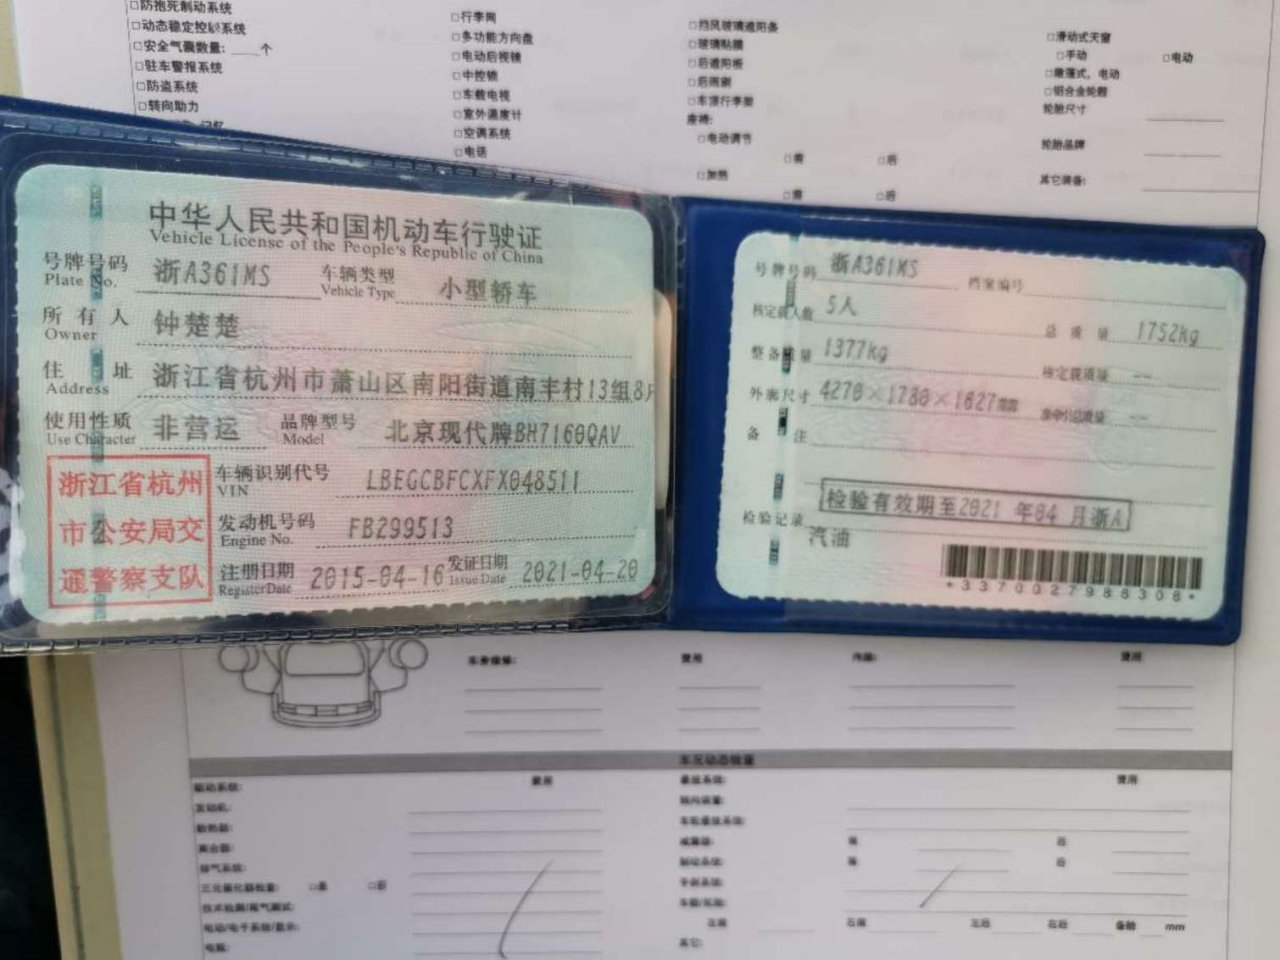 防抱死制动系统
□动态稳定控制系统
□安全气囊数量:____个
□驻车警报系统
□防盗系统
□转向助力
□行李网
□多功能方向盘
□电动后视镜
□中控锁
□车载电视
□室外温度计
□空调系统
□电话
□挡风玻璃遮阳条
□玻璃贴膜
□后遮阳板
□后雨刷
□车顶行李架
座椅:
□电动调节
□前 □后
□加热
□前 □后
□滑动式天窗
□手动 □电动
□敞篷式，电动
□铝合金轮毂
轮胎尺寸
轮胎品牌
其它装备:
中华人民共和国机动车行驶证
Vehicle License of the People's Republic of China
号牌号码 浙A361MS 车辆类型 小型轿车
Plate No. Vehicle Type
所有人 钟楚楚
Owner
住址 浙江省杭州市萧山区南阳街道南丰村13组8户
Address
使用性质 非营运 品牌型号 北京现代牌BH7160QAV
Use Character Model
浙江省杭州
市公安局交
通警察支队
车辆识别代号 LBEGCBFCXFX048511
VIN
发动机号码 FB299513
Engine No.
注册日期 2015-04-16 发证日期 2021-04-20
Register Date Issue Date
号牌号码 浙A361MS 档案编号
核定载人数 5人 总质量 1752kg
整备质量 1377kg 核定载质量 --
外廓尺寸 4270×1780×1627 准牵引总质量 --
备注
检验有效期至2021年04月浙A
检验记录
汽油
*3370027986306*
车身维修: 费用 内饰: 费用
车况动态检查
驱动系统: 费用
发动机:
散热器:
离合器:
排气系统:
三元催化器检查: □是 □否
技术检测/尾气测试:
电动/电子系统/显示:
电瓶:
悬挂系统: 费用
转向装置:
车轮悬挂系统:
减震器: 前 后
制动系统: 前 后
手刹系统:
车胎/轮胎:
左前 右前 左后 右后 备胎 mm
其它: